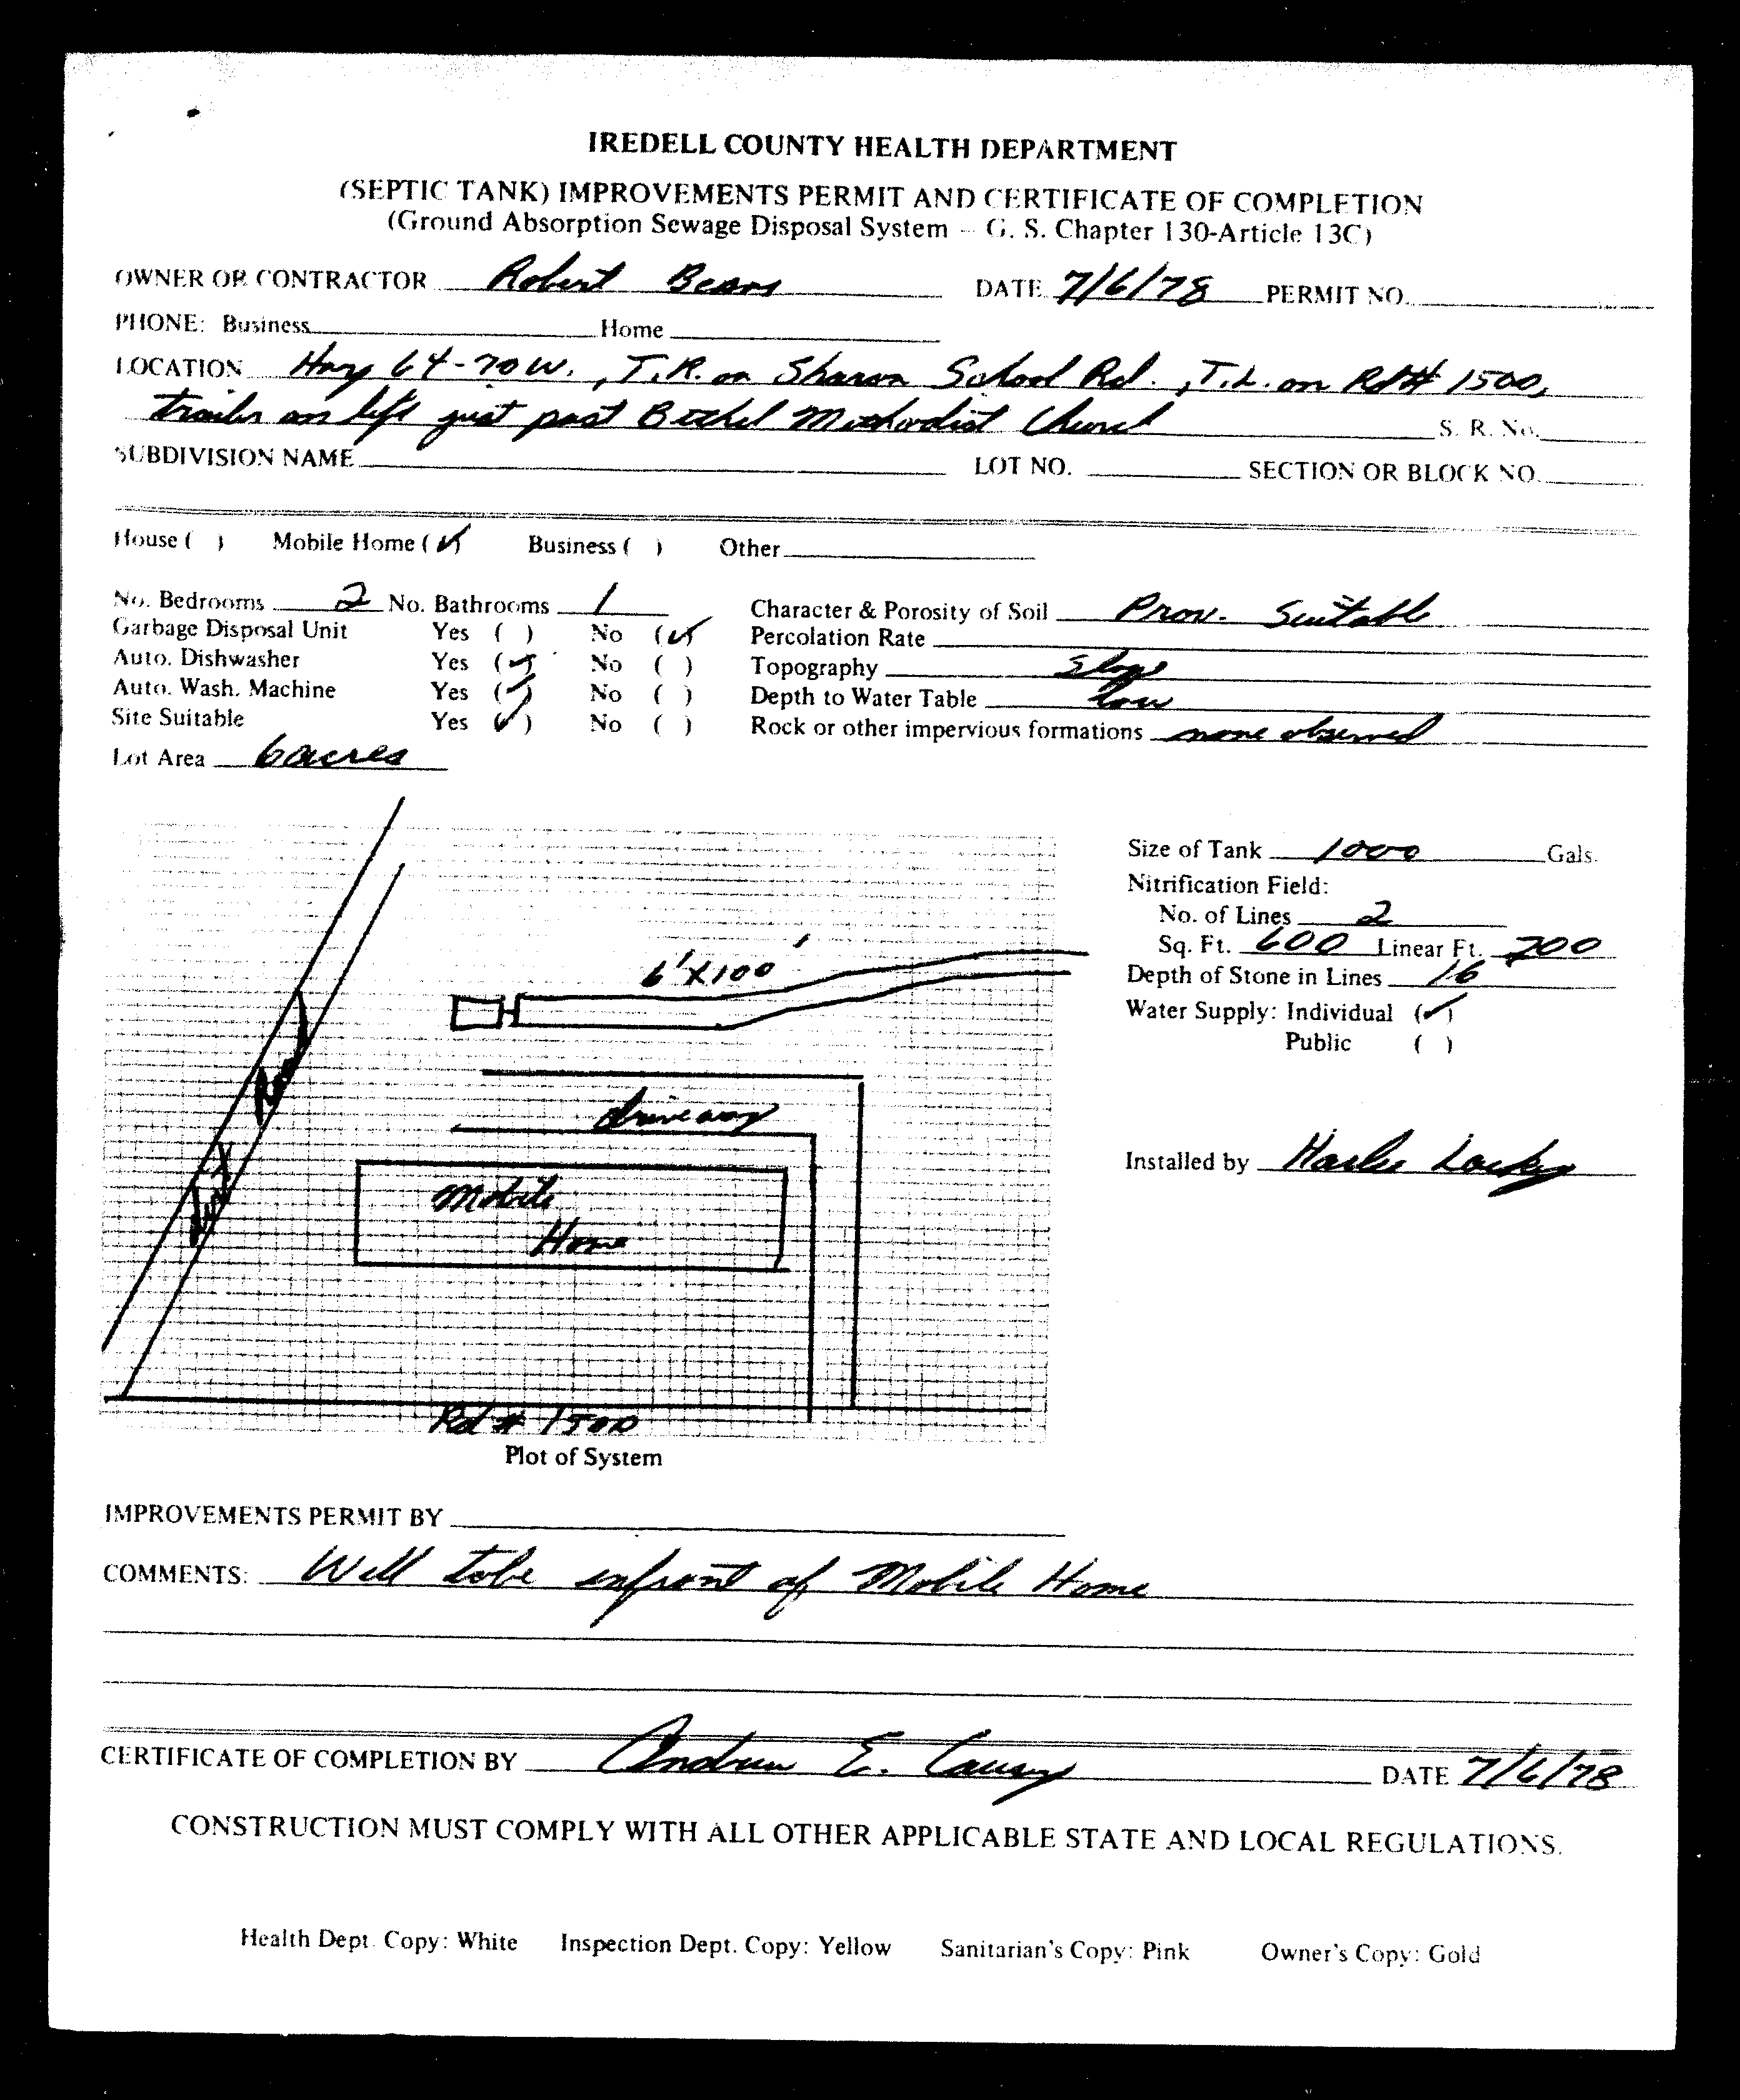 IREDELL COUNTY HEALTH DEPARTMENT
(SEPTIC TANK) IMPROVEMENTS PERMIT AND CERTIFICATE OF COMPLETION
(Ground Absorption Sewage Disposal System – G. S. Chapter 130-Article 13C)
OWNER OR CONTRACTOR Robert Beans DATE 7/6/78 PERMIT NO.
PHONE: Business Home
LOCATION Hwy 64-70 W., T.R. on Sharon School Rd., T.L. on Rd# 1500,
trailer on left just past Bethel Methodist Church S. R. No.
SUBDIVISION NAME LOT NO. SECTION OR BLOCK NO.
House ( ) Mobile Home (✓) Business ( ) Other
No. Bedrooms 2 No. Bathrooms 1 Character & Porosity of Soil Prov. Suitable
Garbage Disposal Unit Yes ( ) No (✓) Percolation Rate
Auto. Dishwasher Yes (✓) No ( ) Topography Slope
Auto. Wash. Machine Yes (✓) No ( ) Depth to Water Table low
Site Suitable Yes (✓) No ( ) Rock or other impervious formations none observed
Lot Area 6 acres
Size of Tank 1000 Gals.
Nitrification Field:
No. of Lines 2
Sq. Ft. 600 Linear Ft. 200
6'X100'
Depth of Stone in Lines 16
Water Supply: Individual (✓)
Public ( )
driveway
Installed by
Mobile
Home
Rd # 1500
Plot of System
IMPROVEMENTS PERMIT BY
COMMENTS: Well to be infront of Mobile Home
CERTIFICATE OF COMPLETION BY Andrew E. Causey DATE 7/6/78
CONSTRUCTION MUST COMPLY WITH ALL OTHER APPLICABLE STATE AND LOCAL REGULATIONS.
Health Dept. Copy: White Inspection Dept. Copy: Yellow Sanitarian's Copy: Pink Owner's Copy: Gold